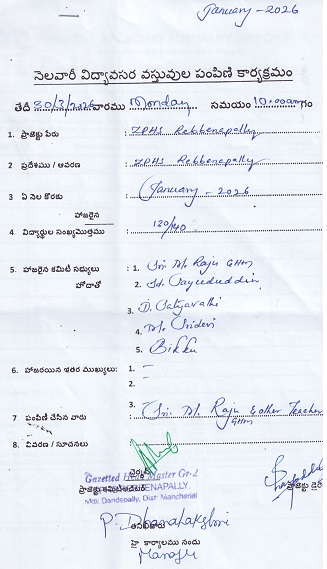 January - 2026
నెలవారీ విద్యావసర వస్తువుల పంపిణి కార్యక్రమం
తేదీ 20/3/2026 వారము Monday సమయం 10:00am గం
1. ప్రాజెక్టు పేరు : ZPHS Rebbenapally
2. ప్రదేశము / ఆవరణ : ZPHS Rebbenapally
3 ఏ నెల కొరకు : January - 2026
హాజరైన
4. విద్యార్థుల సంఖ్యమొత్తము : 120/140
5. హాజరైన కమిటీ సభ్యులు : 1. Sri M. Raju GHM
హోదాతో 2. Sd. Sayeeduddin
3. D. Satyavathi
4. M. Sridevi
5. Bikku
6. హాజరయిన ఇతర ముఖ్యులు: 1. —
2. —
3.
7 పంపిణి చేసిన వారు : Sri. M. Raju & other Teacher
GHM
8. వివరణ / సూచనలు :
Gazetted Head Master Gr-2
Mdl: Dandepally, Dist: Mancherial
P. Dhanalakshmi
హై కార్యాలము నందు